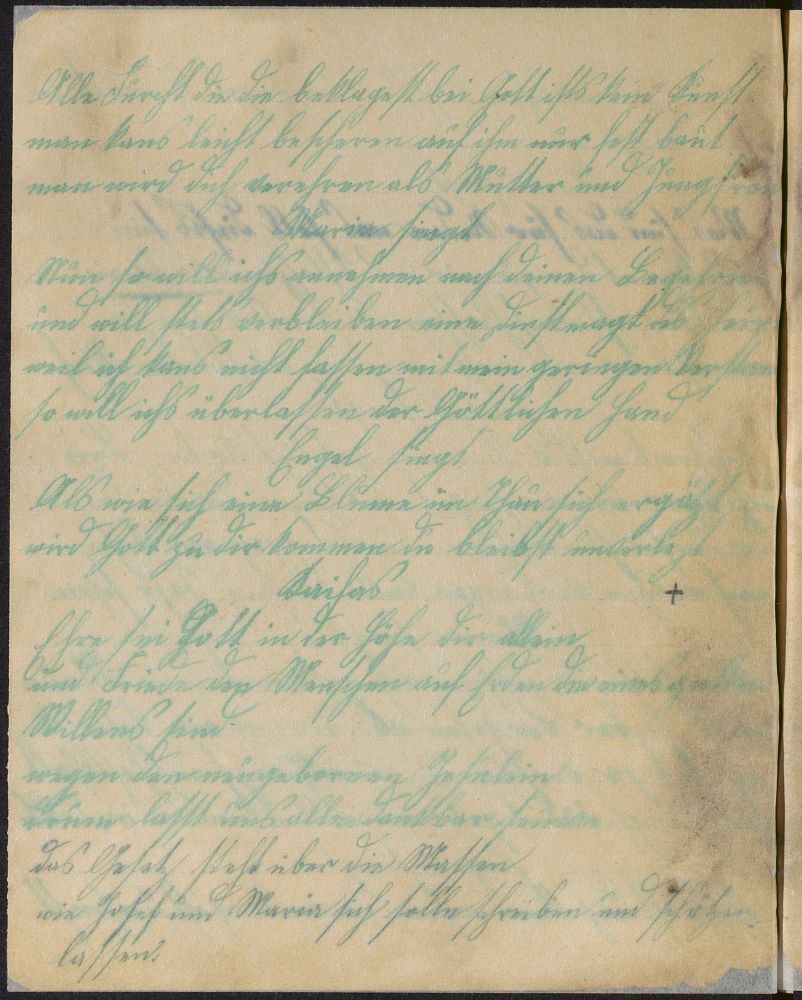 Alle Furcht die die beklagest bei Gott ists kein Kunst
man kans leicht bescheren auf ihm nur fest baut
man wird dich verehren als Mutter und Jungfrau
Maria singt
Nun so will ichs annehmen nach deinen Begehren
und will stets verbleiben eine Dienstmagd des Herrn
weil ich kans nicht fassen mit mein geringen Verstand
so will ichs überlassen der Göttlichen Hand
Engel singt
Als wie sich eine Blume im Thau sich ergäzt
wird Gott zu dir kommen du bleibst unverlezt
Kaifas
+
Ehre sei Gott in der Höhe dir allein
und Friede den Menschen auf Erden die eines guten
Willens sind
wegen den neugebornen Jesulein
drum lasst uns alle dankbar sein
das Gesetz steht über die Massen
wie Josef und Maria sich solln schreiben und schätzen
lassen.